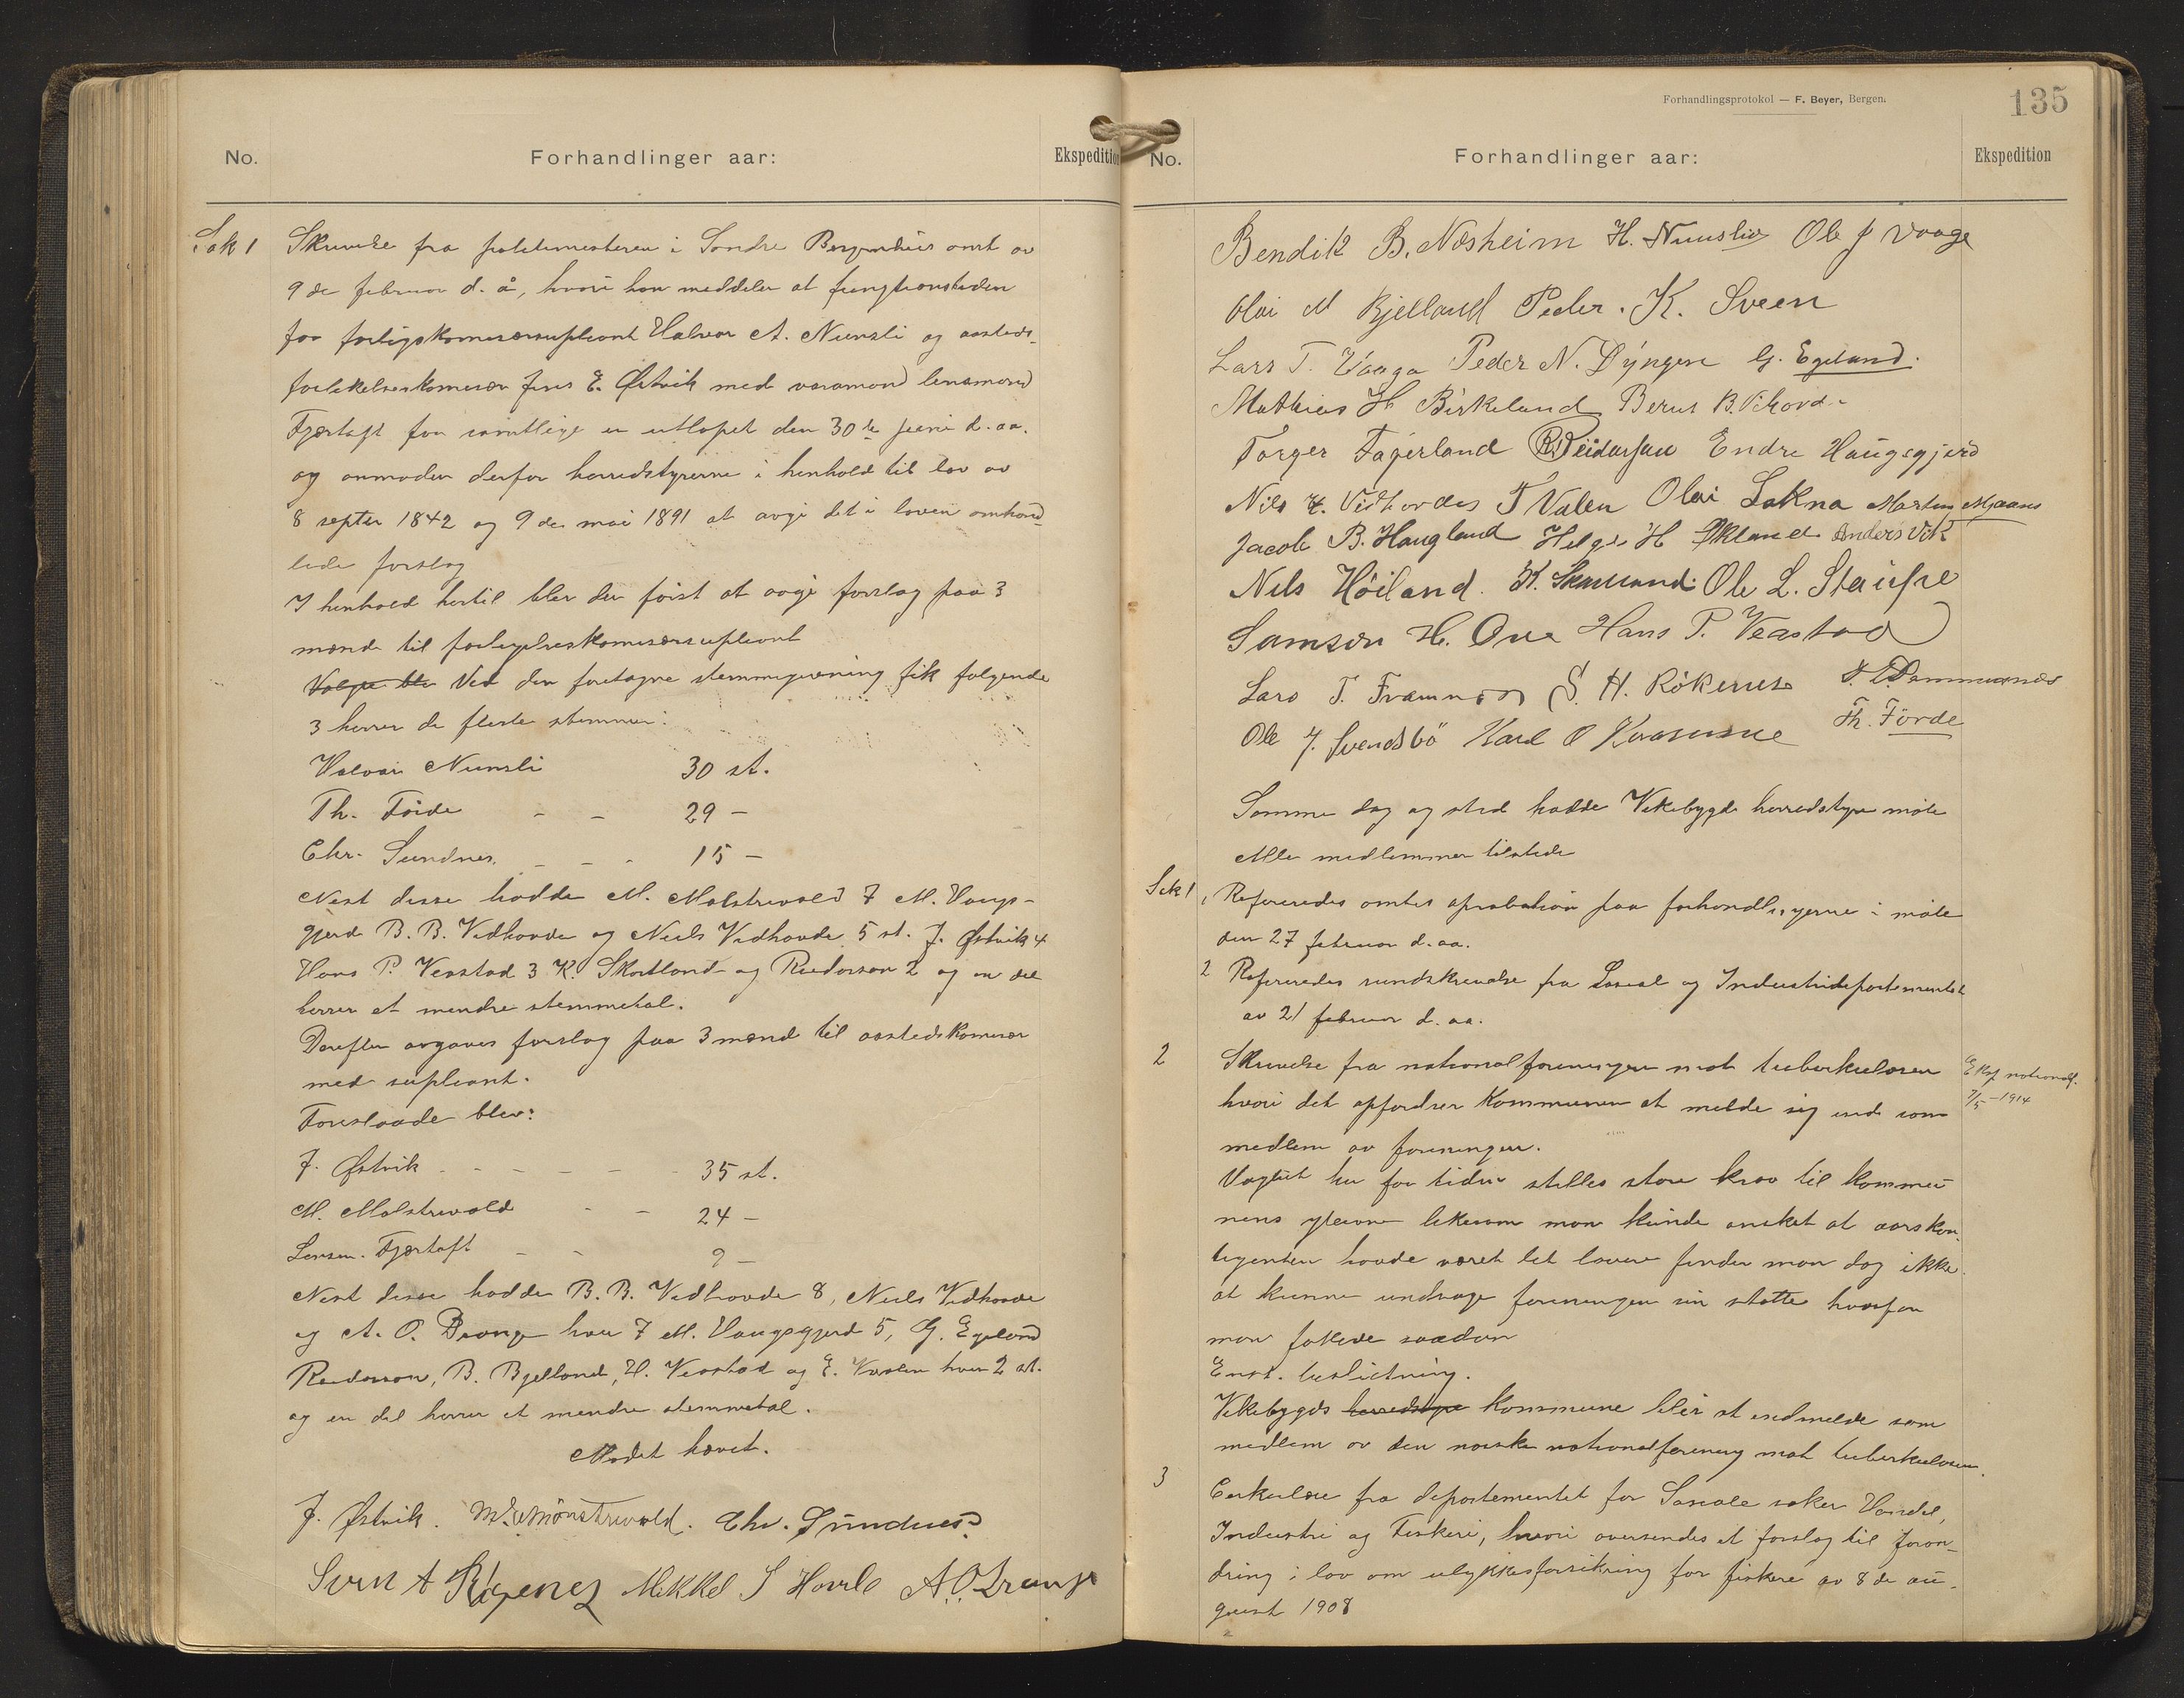 No.
Forhandlinger aar:
Ekspedition
Sak 1
Skrivelse fra politimesteren i Søndre Bergenhus amt av
9 de februar d. å, hvori han meddeler at fungtionstiden
for forligskomisærsupleant Halvor A. Nunsli og aasteds-
forlikelseskomisær Jens E. Østvik med varamand lensmand
Fjærtoft for samtlige er utløpet den 30 te juni d. aa.
og anmoder derfor herredstyrerne i henhold til lov av
8 septbr 1842 og 9 de mai 1891 at avgi det i loven omhand
lede forslag
I henhold hertil blev der først at avgi forslag paa 3
mænd til forligelseskomisærsupleant
Valgte blev Ved den foretagne stemmegivning fik følgende
3 herrer de fleste stemmer:
Halvor Nunsli 30 st.
Th. Førde - - 29 -
Chr. Sundnes. - - - 15 -
Nest disse hadde M. Mølstrevold 7 M. Haugs-
gjerd B. B. Vedhovde og Niels Vedhovde 5 st. J. Østvik 4
Hans P. Veastad 3 K. Skortland og Reidarson 2 og en del
herrer et mindre stemmetal.
Derefter avgaves forslag paa 3 mænd til aastedskomisær
med supleant.
Foreslaaede blev:
J. Østvik - - - - - - 35 st.
M. Mølstrevold - - 24 -
Lensm. Fjærtoft - - 9 -
Nest disse hadde B. B. Vedhovde 8, Niels Vedhovde
og A. O. Drange hver 7 M. Haugsgjerd 5, G. Egeland
Reidarson, B. Bjelland, H. Veastad og E. hver 2 st.
og en del herrer et mindre stemmetal.
Mødet hævet.
J. Østvik. M. Mönstrevold. Chr. Sundnes
Sven A Røgenes Mikkel S Hovle A. O. Drange
Forhandlingsprotokol — F. Beyer, Bergen.
135
No.
Forhandlinger aar:
Ekspedition
Bendik B. Næsheim H. Nunsli Ole J Vaage
Olai M Bjelland Peder. K. Sveen
Lars T. Vaaga Peder N. Dyngen G. Egeland.
Mathias H Birkeland Bernt B. Vihovde
Torger Fagerland B Reidarson Endre Haugsgjerd
Nils Vidhovdes T Valen Olai Løkna Morten Mjaanes
Jacob B. Haugland Helge H Økland Anders Vik
Nils Höiland. K. Skortland Ole L. Stensle
Samson H. Ove Hans P. Veastad
Lars T. Framnes S. H. Rökenes
Ole J. Svendsbö Karl O Th. Förde
Samme dag og sted hadde Vikebygds herredstyre møte
Alle medlemmer tilstede
Sak 1, Refereredes amtets aprobation paa forhandlingerne i møte
den 27 februar d. aa.
2 Refereredes rundskrivelse fra Sosial og Industridepartementet
av 21 februar d. aa.
2 Skrivelse fra nationalforeningen mot tuberkulosen
hvori det opfordrer Kommunen at melde sig ind som
medlem av foreningen.
Eksp nationalf.
7/5-1914
Uagtet her for tiden stilles store krav til kommu
nens yteevne likesom man kunde ønsket at aarskon-
tigenten havde været let lavere finder man dog ikke
at kunne undrage foreningen sin støtte hvorfor
man fatede saadan
Enst. beslutning.
Vikebygds herredstyre Kommune blir at indmelde som
medlem av den norske nationalforening mot tuberkulosen.
3 Cirkulære fra departementet for Sosiale saker Handel,
Industri og Fiskeri, hvori oversendes et forslag til foran-
dring i lov om ulykkesforsikring for fiskere av 8 de au-
gust 1908